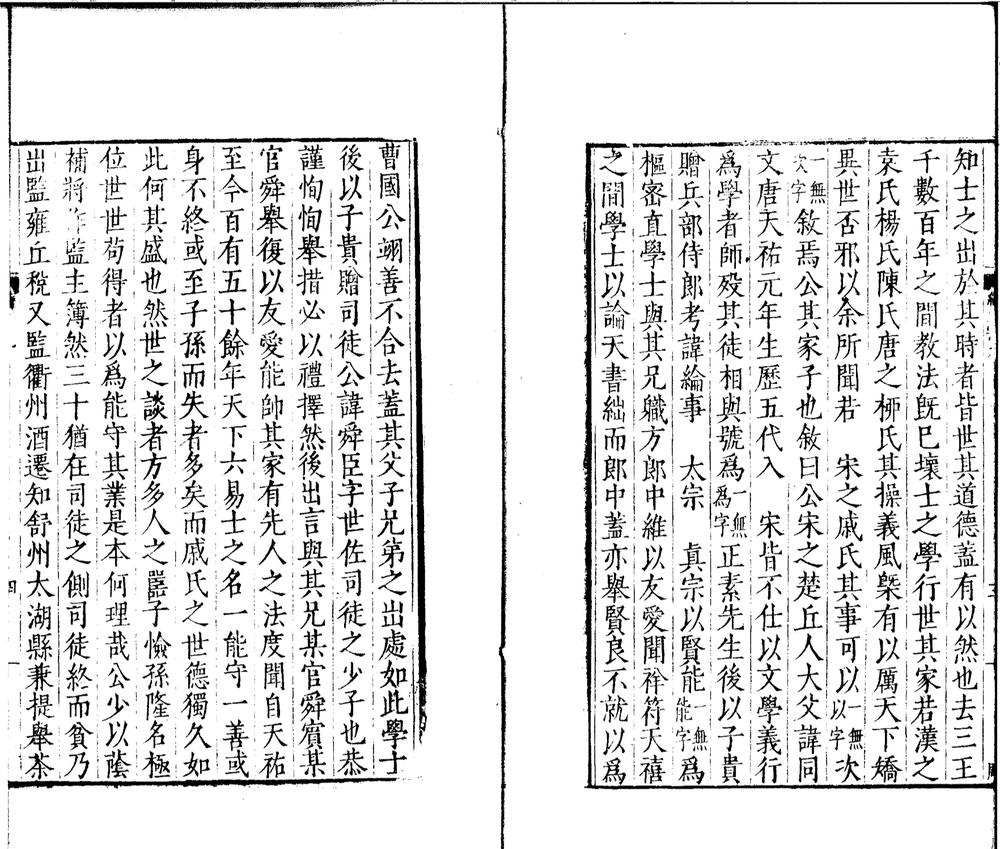 知士之出於其時者皆世其道德蓋有以然也去三王
千數百年之間教法旣已壞士之學行世其家若漢之
袁氏楊氏陳氏唐之栁氏其操義風槩有以厲天下矯
異世否邪以余所聞若　宋之戚氏其事可以一無以字次
一無次字敘焉公其家子也敘曰公宋之楚丘人大父諱同
文唐天祐元年生歷五代入　宋皆不仕以文學義行
爲學者師殁其徒相與號爲一無爲字正素先生後以子貴
贈兵部侍郎考諱綸事　太宗　眞宗以賢能一無能字爲
樞密直學士與其兄職方郎中維以友愛聞祥符天禧
之間學士以論天書絀而郎中蓋亦舉賢良不就以爲
曹國公翊善不合去蓋其父子兄弟之出處如此學士
後以子貴贈司徒公諱舜臣字世佐司徒之少子也恭
謹恂恂舉措必以禮擇然後出言與其兄某官舜賓某
官舜舉復以友愛能帥其家有先人之法度聞自天祐
至今百有五十餘年天下六易士之名一能守一善或
身不終或至子孫而失者多矣而戚氏之世德獨久如
此何其盛也然世之談者方多人之嚚子憸孫隆名極
位世世苟得者以爲能守其業是本何理哉公少以蔭
補將作監主簿然三十猶在司徒之側司徒終而貧乃
出監雍丘稅又監衢州酒遷知舒州太湖縣兼提舉茶
四